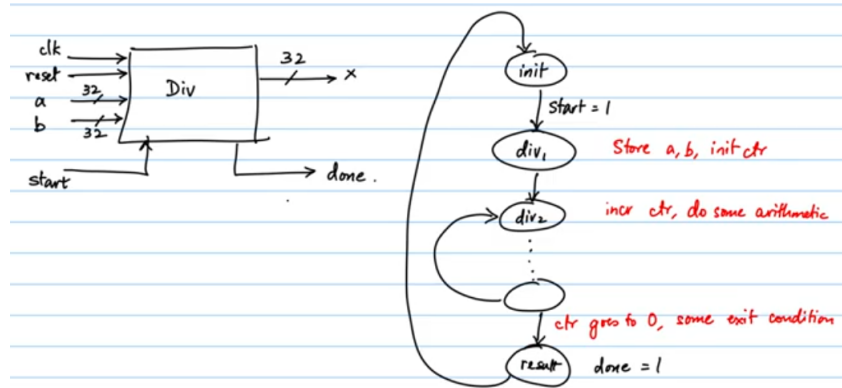 clk
reset
a 32
b 32
Div
32
x
start
done.
init
start = 1
div1
Store a, b, init ctr
div2
incr ctr, do some arithmetic
ctr goes to 0, some exit condition
result
done = 1